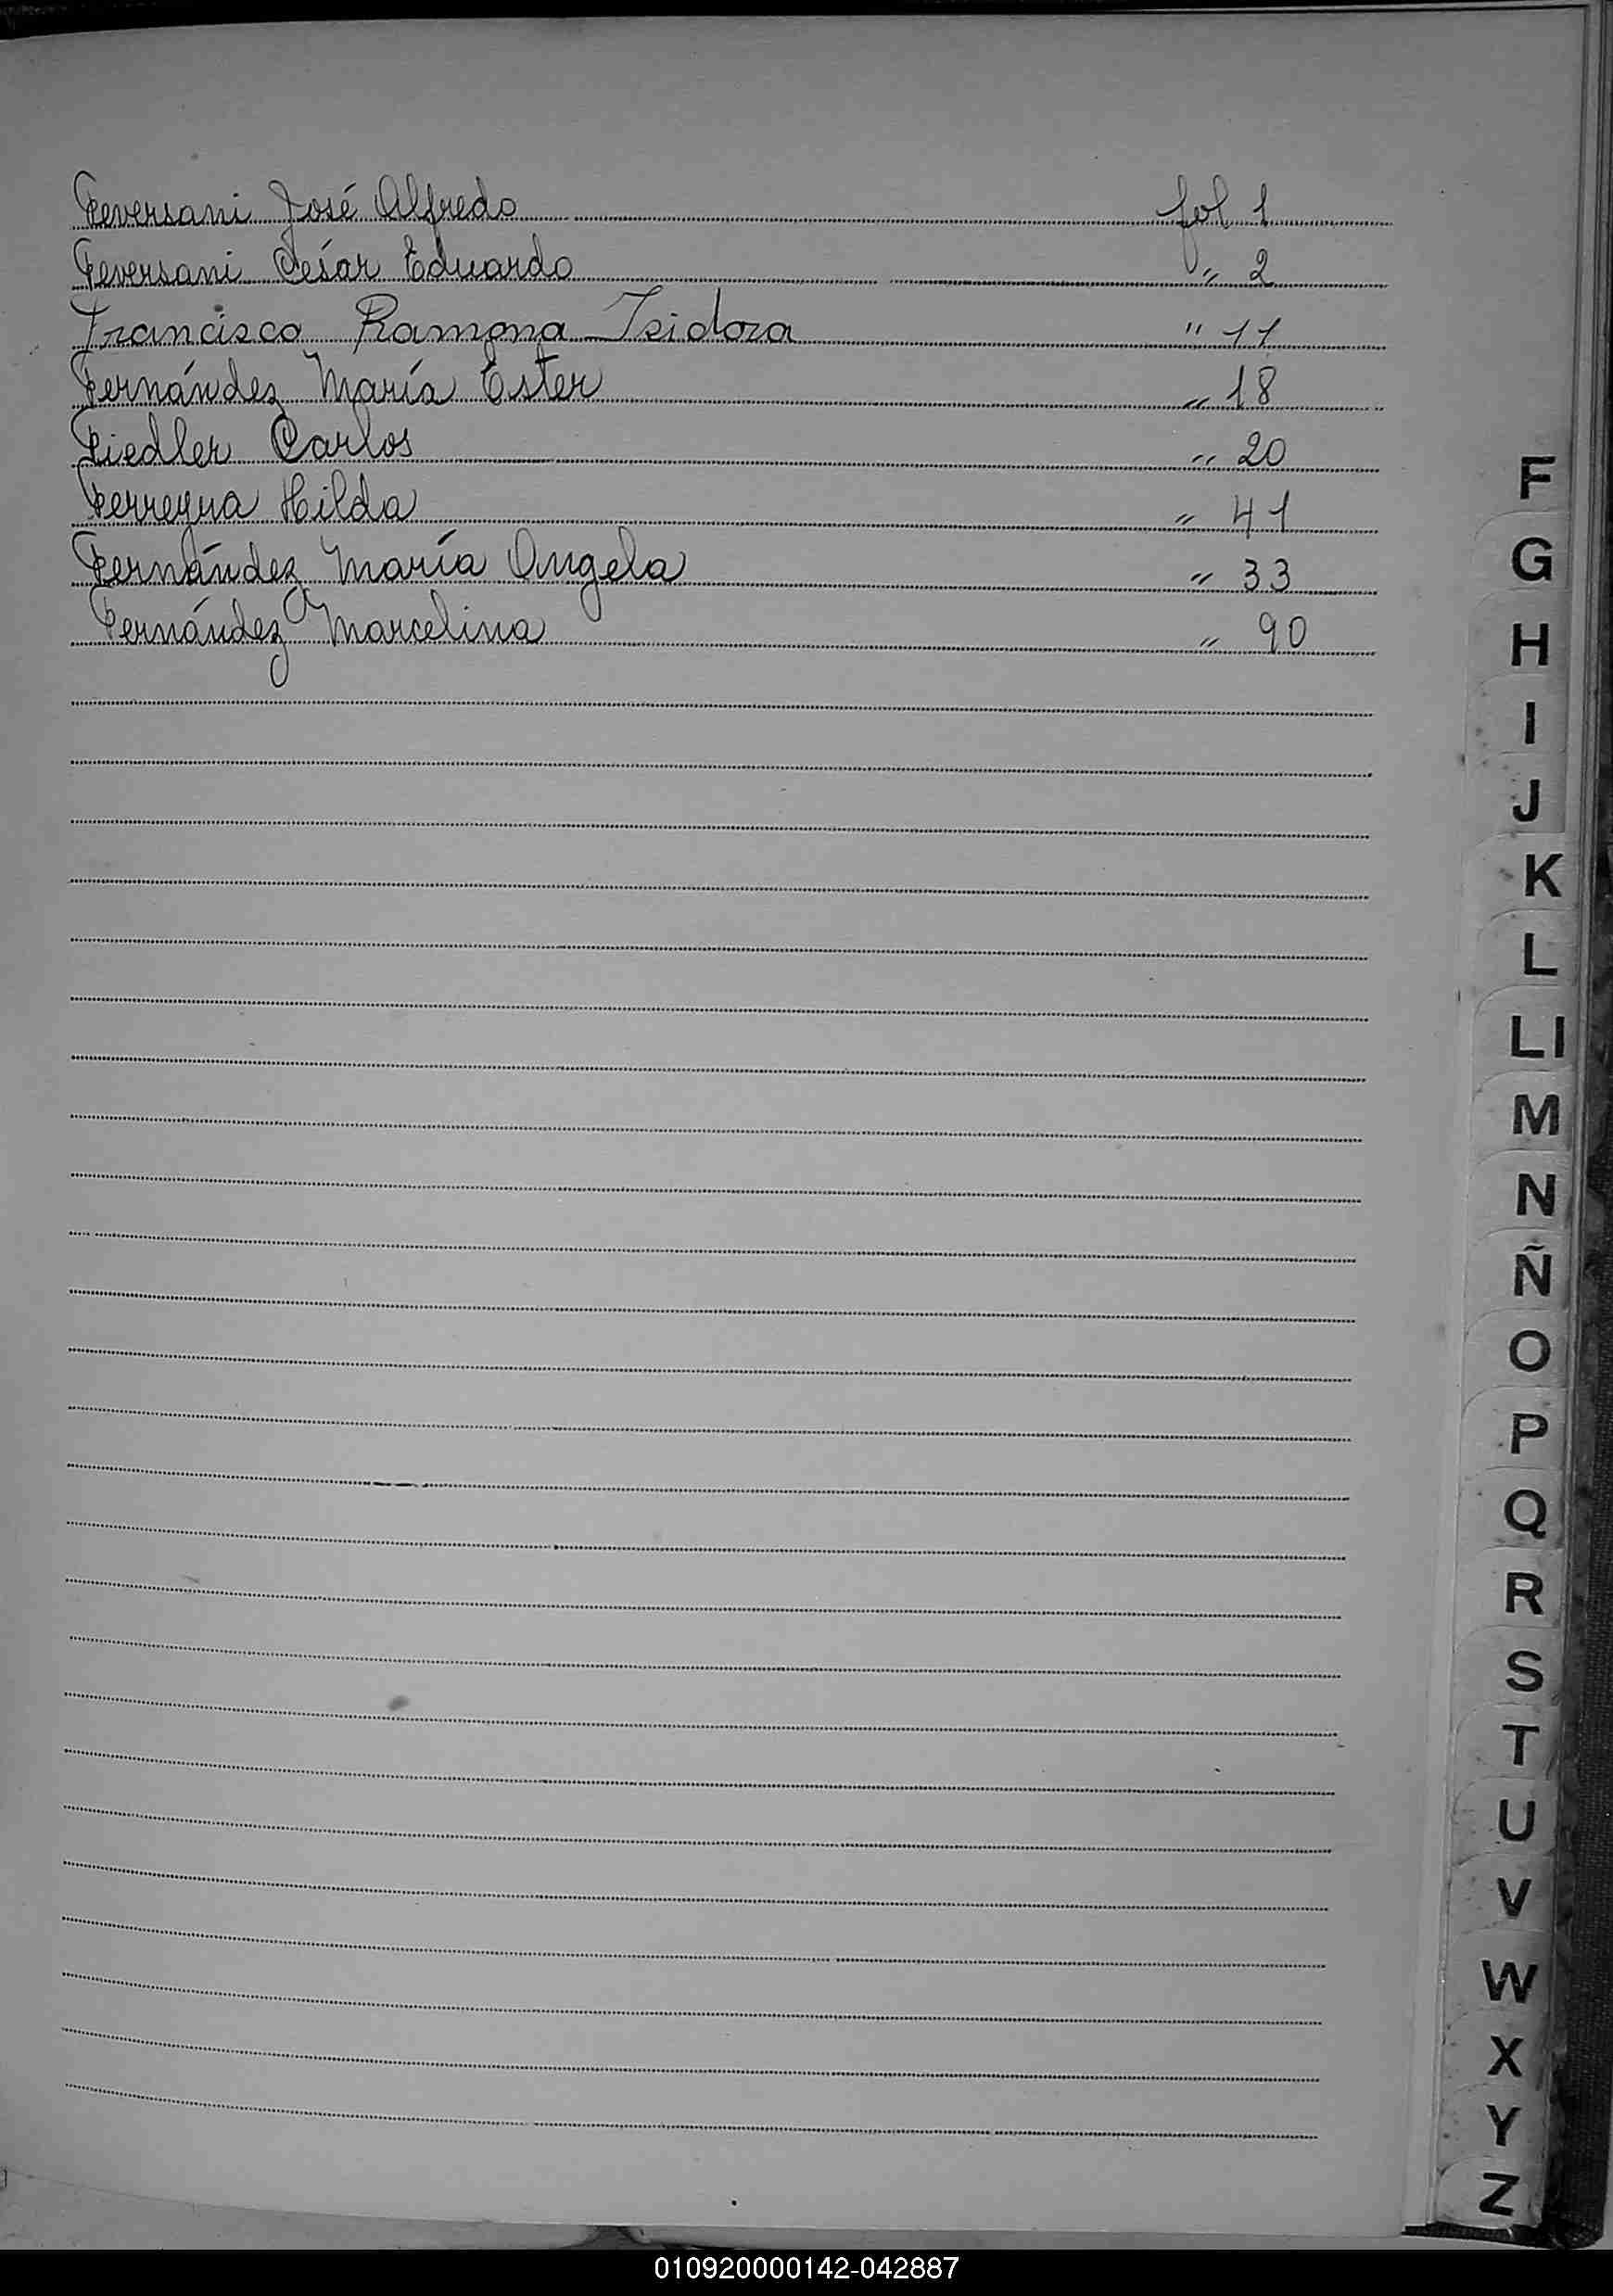 Feversani José Alfredo fol 1
Feversani César Eduardo " 2
Francisco Ramona Isidora " 11
Fernández María Ester " 18
Fiedler Carlos " 20
Ferreyra Hilda " 41
Fernández María Angela " 33
Fernández Marcelina " 90
F
G
H
I
J
K
L
Ll
M
N
Ñ
O
P
Q
R
S
T
U
V
W
X
Y
Z
010920000142-042887